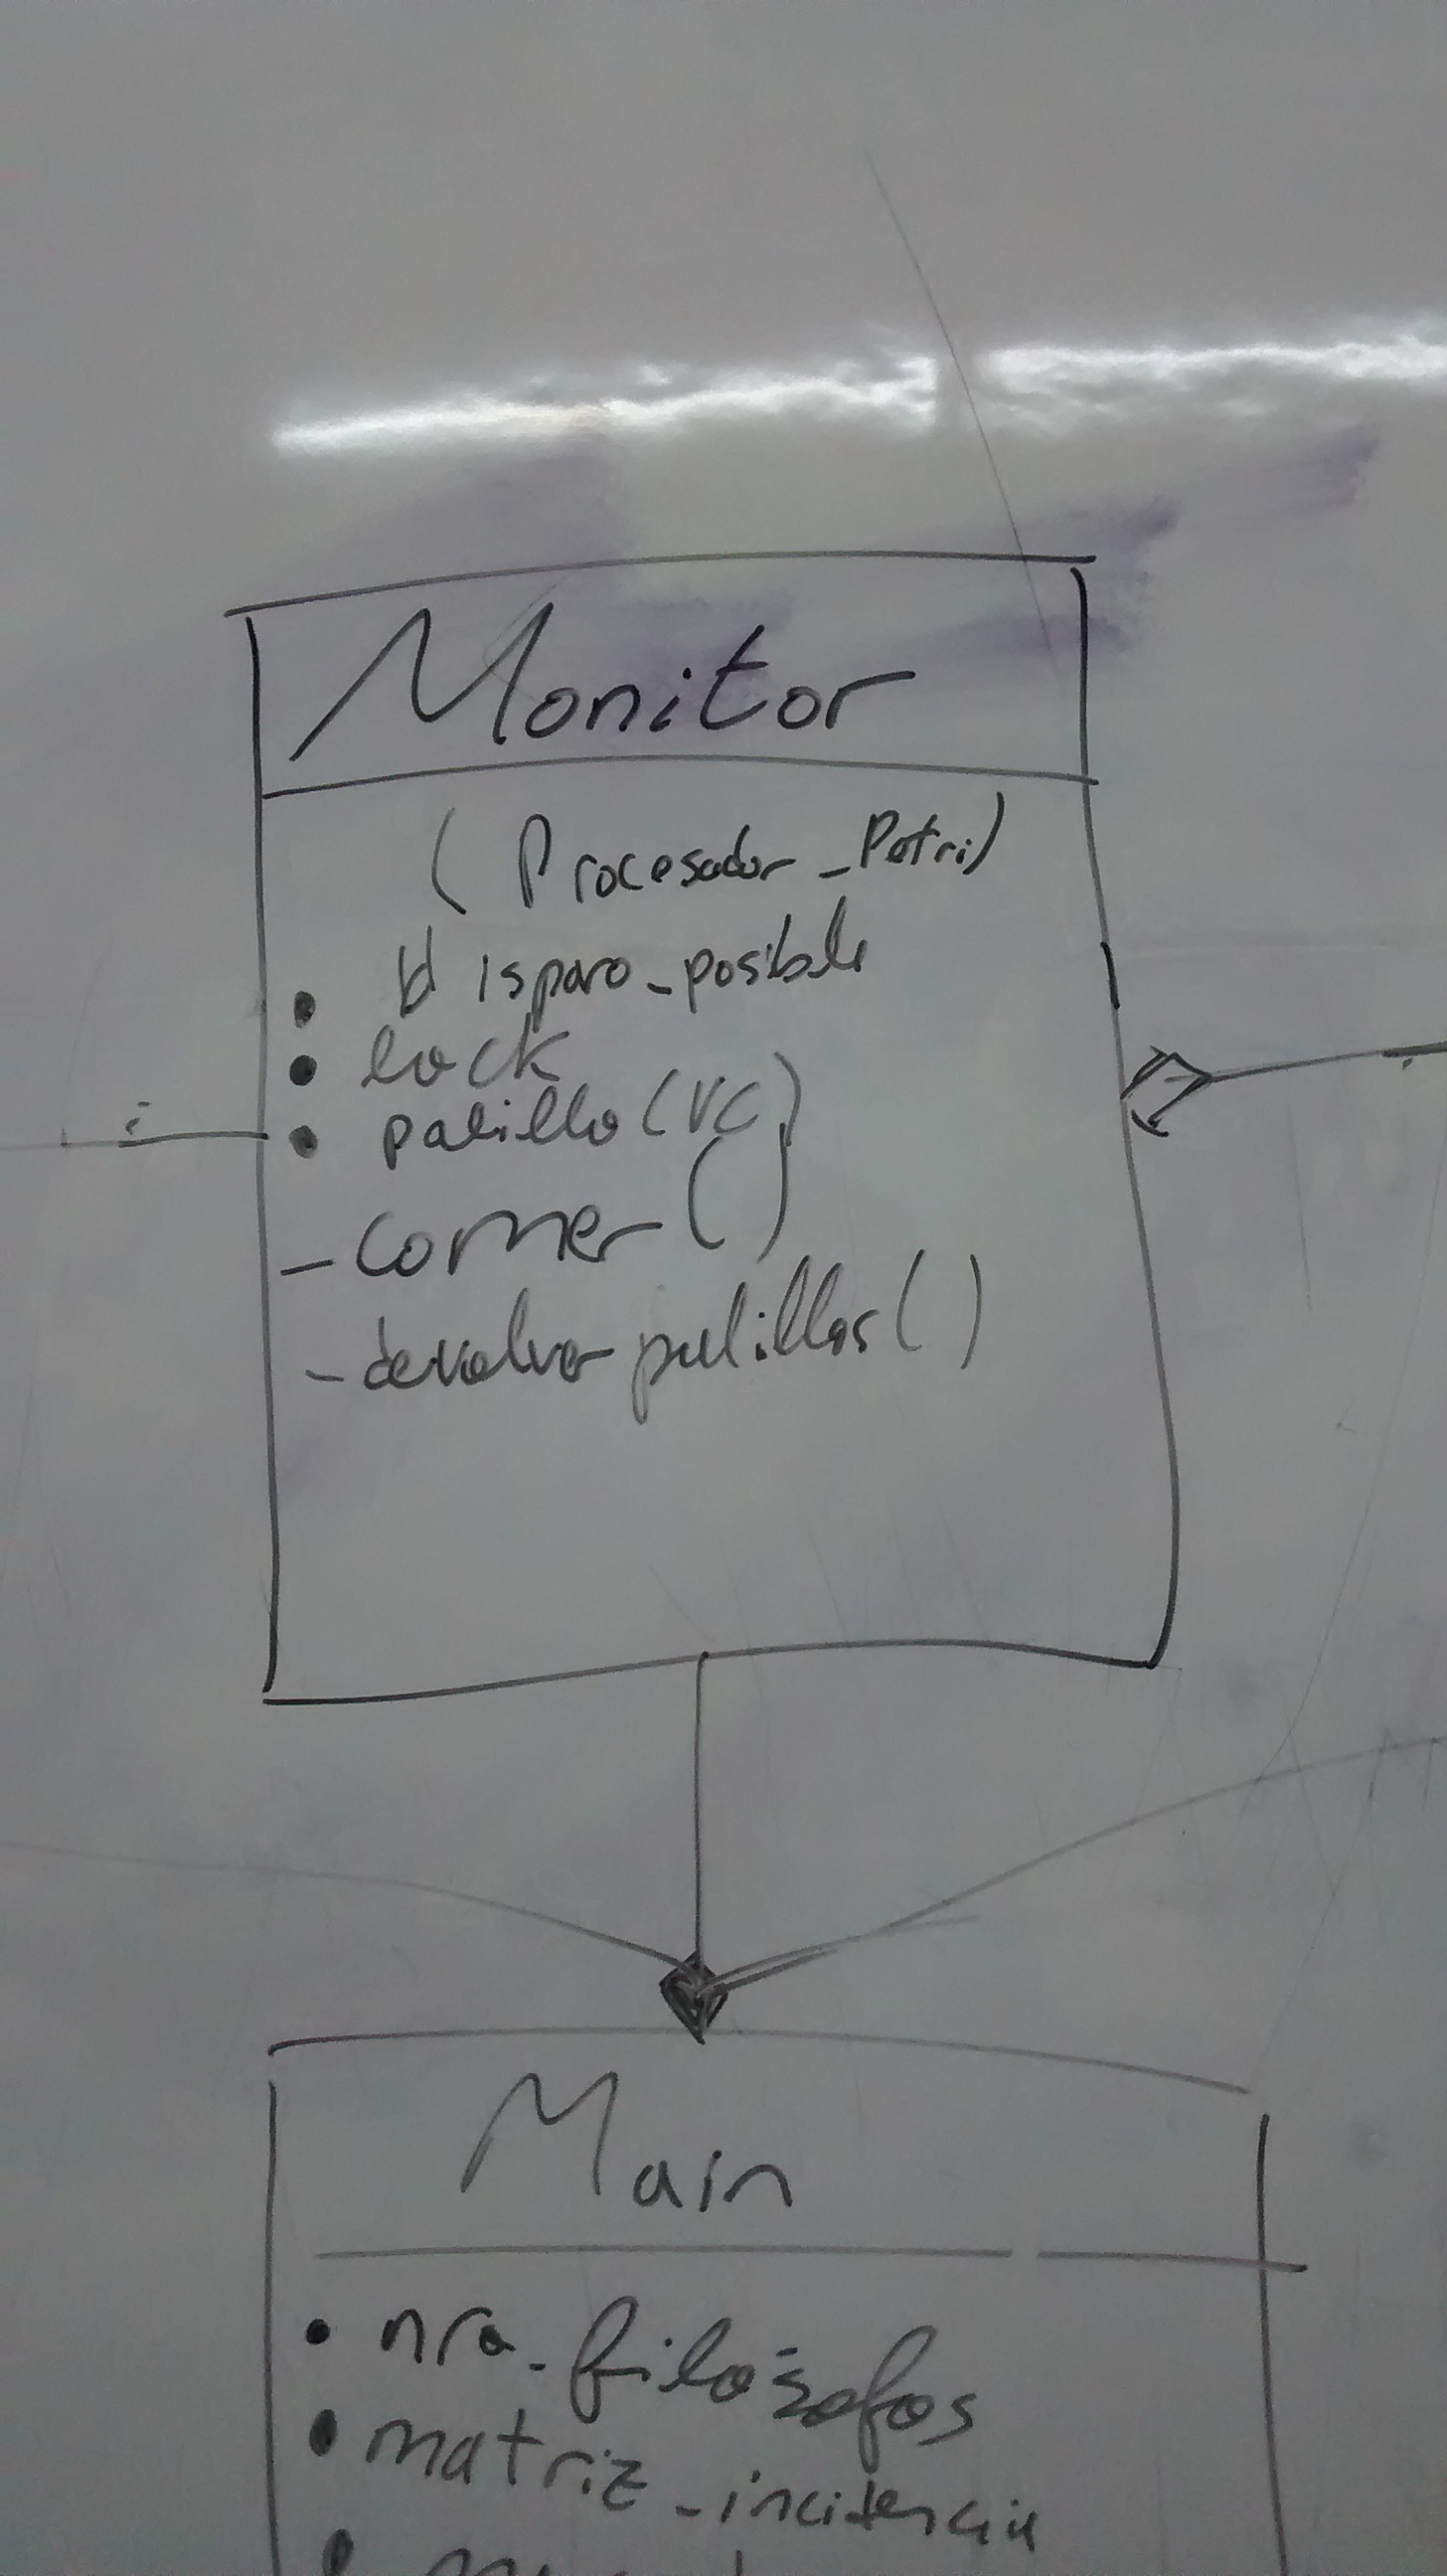 Monitor
(Procesador_Petri)
• disparo_posible
• lock
• palillo (VC)
- comer ()
- devolver palillos ()
Main
• nro_filósofos
• matriz_incidencia